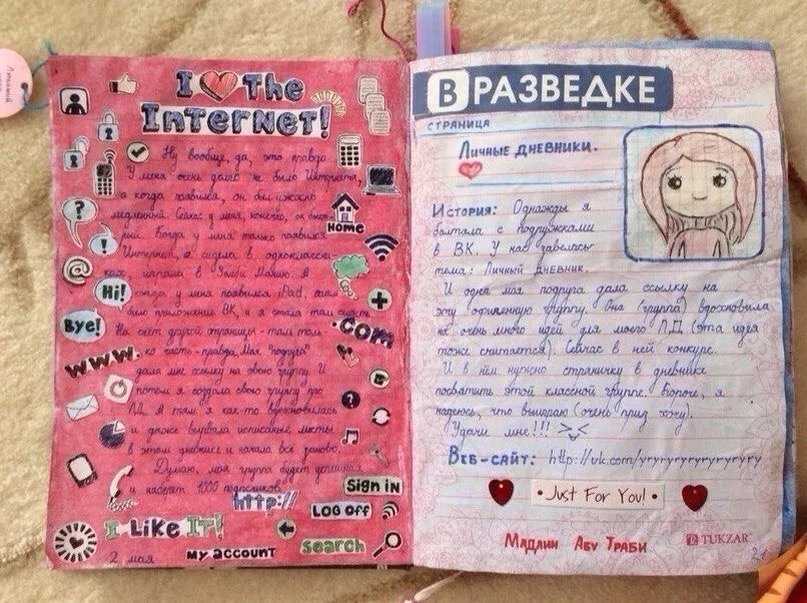 I The
Internet!
Ну вообще, да, это правда
У меня очень долго не было Интернета,
а когда появился, он был ужасно
медленный. Сейчас у меня, конечно, он быст-
рый. Когда у меня только появился
Интернет, я сидела в одноклассни-
ках, играла в Зомби
когда у меня появился iPad, там
было приложение ВК, и я стала там сидеть
На счёт другой страницы - там толь-
ко часть - правда. Моя "подруга"
дала мне ссылку на свою группу. И
потом я создала свою группу про
ЛД. А там я как-то вдохновилась
и даже вырвала исписанные листы
в этом дневнике и начала всё заново.
Думаю, моя группа будет успешной
и наберёт 1000 подписчиков.
Home
?
!
@
Hi!
Bye!
.com
www.
?
Sign in
http://
LOG OFF
I Like It!
My account
search
2 мая
В РАЗВЕДКЕ
СТРАНИЦА
Личные дневники.
История: Однажды я
болтала с подружками
в ВК. У нас завелась
тема: Личный дневник.
И одна моя подруга дала ссылку на
эту офигенную группу. Она (группа) вдохновила
на очень много идей для моего Л.Д (эта идея
тоже считается). Сейчас в ней конкурс.
И в нём нужно страничку в дневнике
посвятить этой классной группе. Короче, я
надеюсь, что выиграю (очень приз хочу).
Удачи мне!!! >_<
Веб-сайт: http://vk.com/yryryryryryryryry
• Just For You! •
Мадлин Абу Траби
TUKZAR